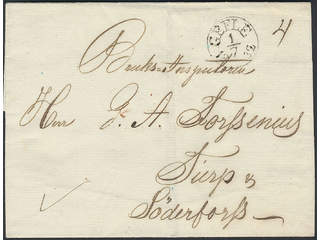 GEFLE
1
7
4
Bruks-Inspectoren
Herr J. A. Forssenius
Tierp &
Söderforss